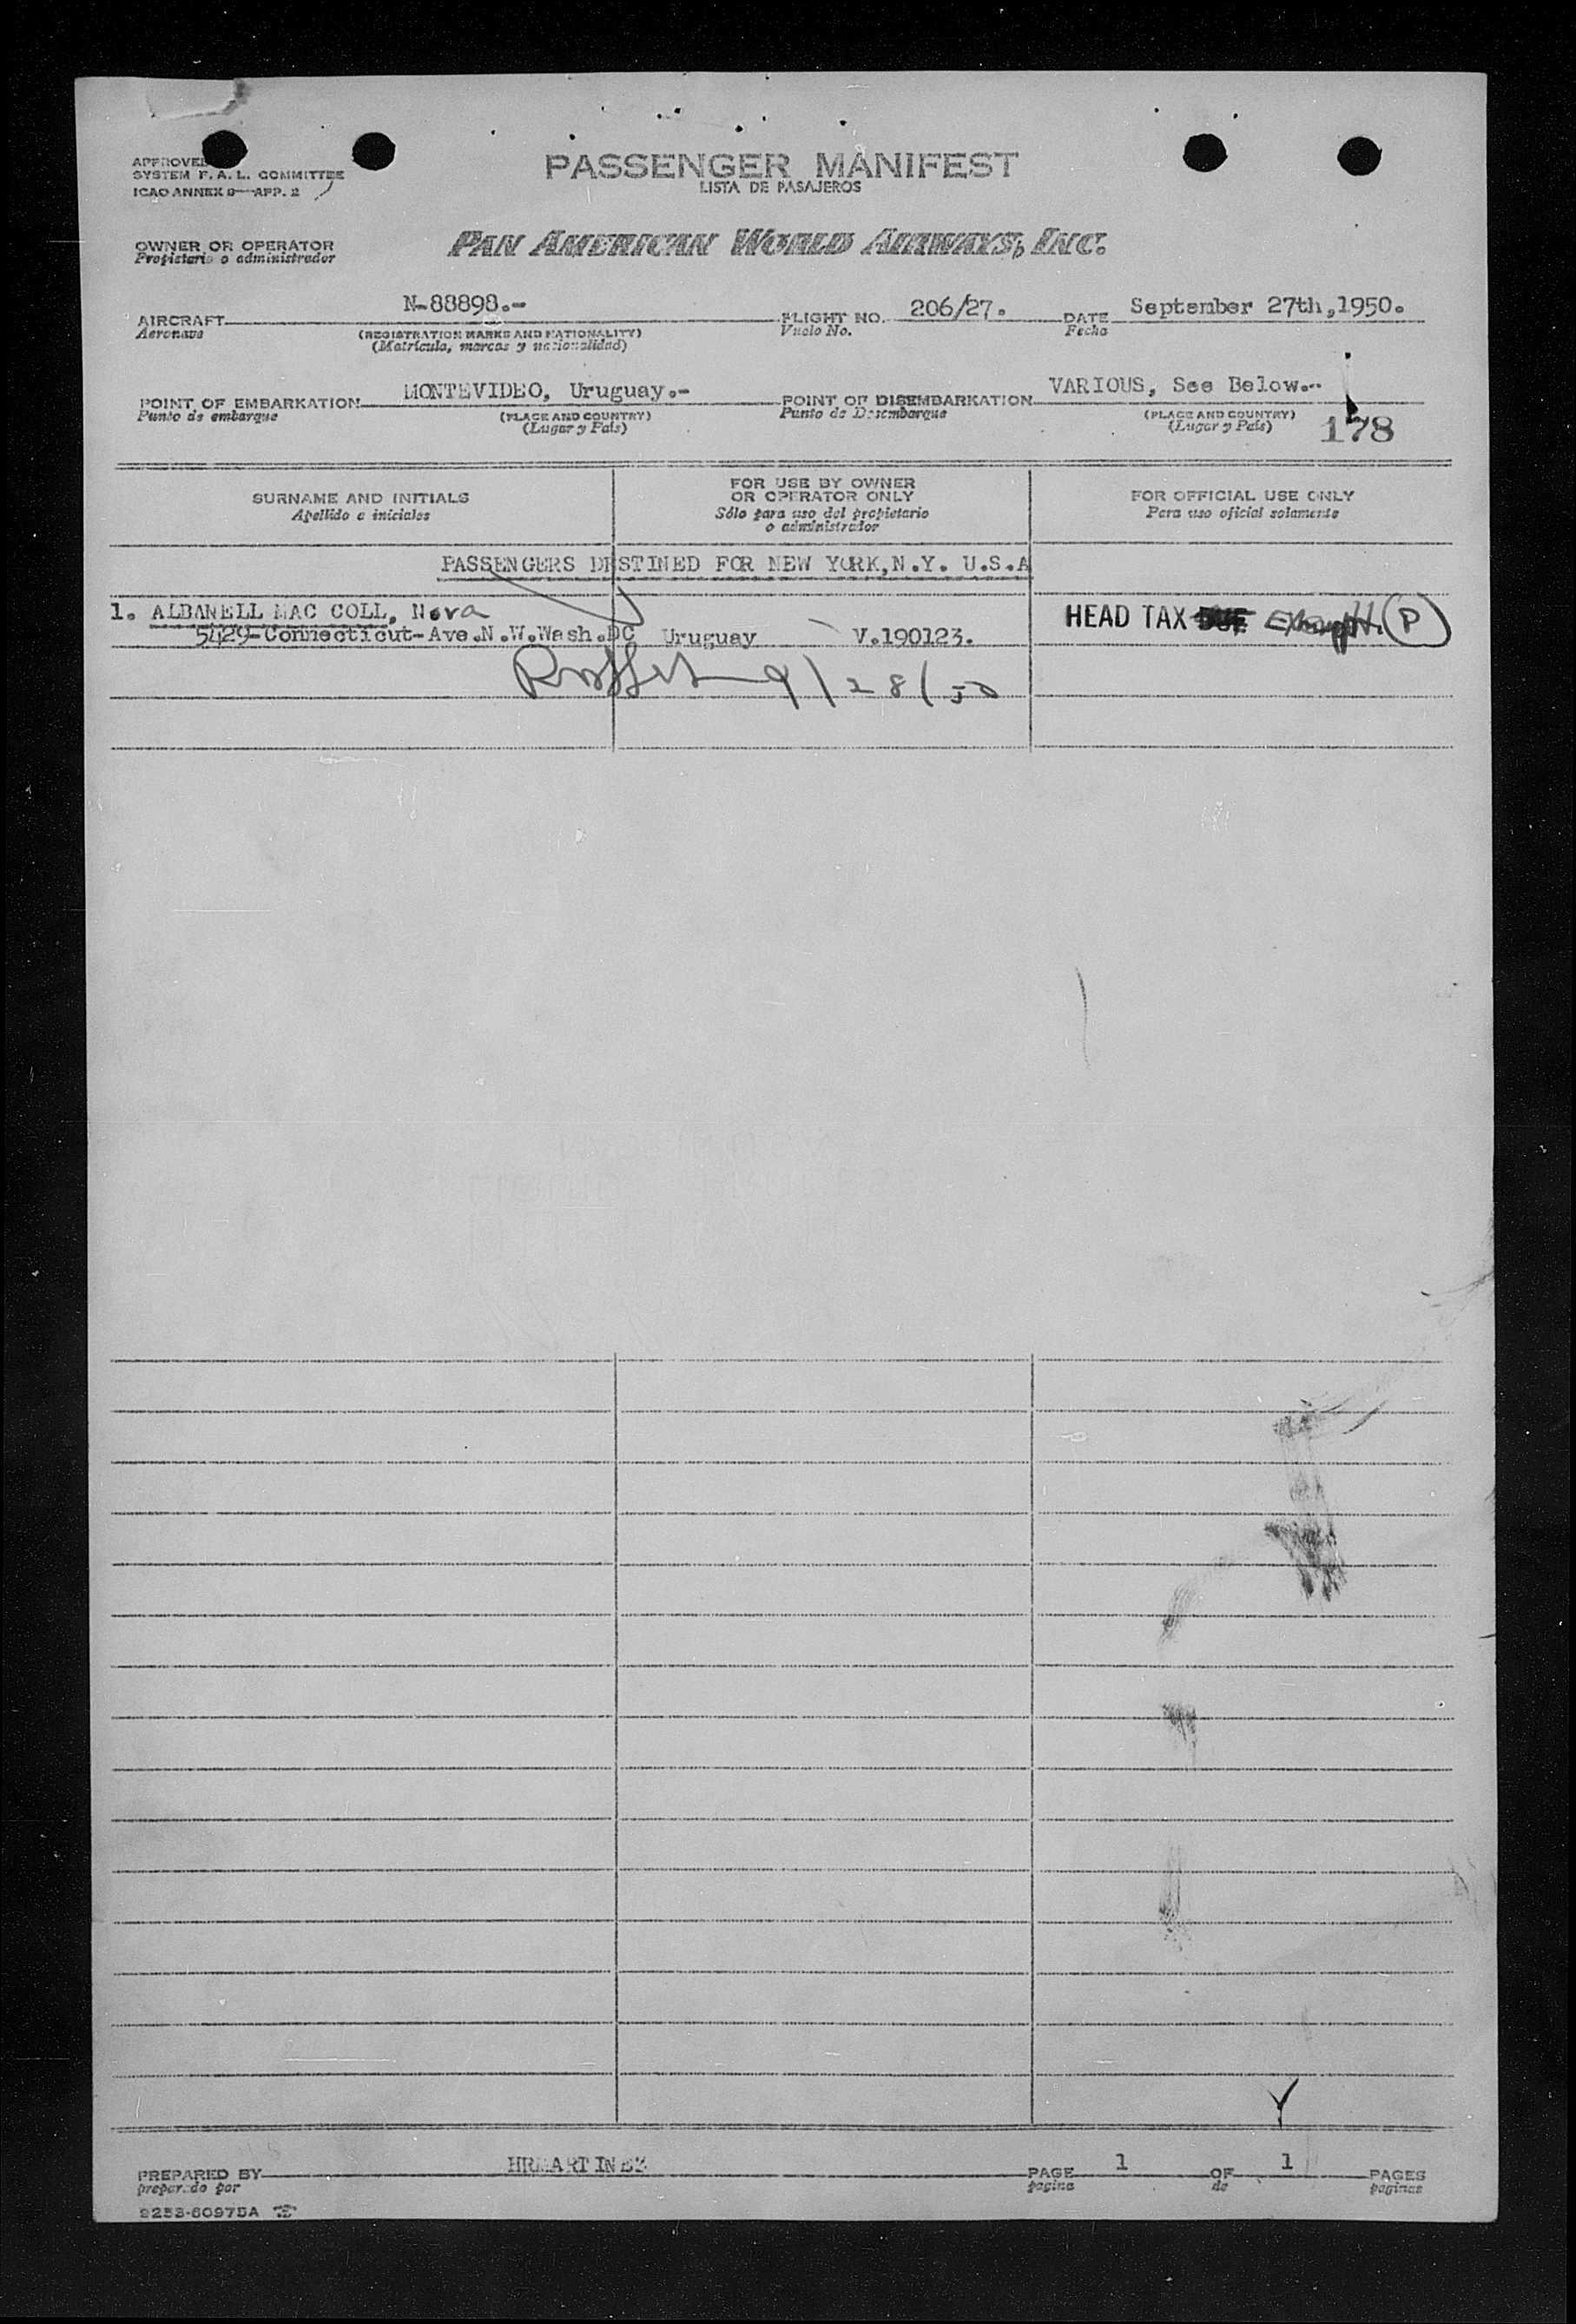 APPROVED
SYSTEM F. A. L. COMMITTEE
ICAO ANNEX 9—APP. 2
PASSENGER MANIFEST
LISTA DE PASAJEROS
OWNER OR OPERATOR
Propietario o administrador
PAN AMERICAN WORLD AIRWAYS, INC.
AIRCRAFT N-88898.- FLIGHT NO. 206/27. DATE September 27th,1950.
Aeronave (REGISTRATION MARKS AND NATIONALITY) Vuelo No. Fecha
(Matrícula, marcas y nacionalidad)
POINT OF EMBARKATION MONTEVIDEO, Uruguay.- POINT OF DISEMBARKATION VARIOUS, See Below.-
Punto de embarque (PLACE AND COUNTRY) Punto de Desembarque (PLACE AND COUNTRY)
(Lugar y País) (Lugar y País) 178
SURNAME AND INITIALS
Apellido e iniciales
FOR USE BY OWNER
OR OPERATOR ONLY
Sólo para uso del propietario
o administrador
FOR OFFICIAL USE ONLY
Para uso oficial solamente
PASSENGERS DESTINED FOR NEW YORK,N.Y. U.S.A
1. ALBANELL MAC COLL, Nora
5429-Connecticut-Ave.N.W.Wash.DC Uruguay V.190123.
HEAD TAX DUE Exempt. (P)
9/28/50
PREPARED BY HRMARTINEZ PAGE 1 OF 1 PAGES
preparado por pagina de paginas
9253-60975A